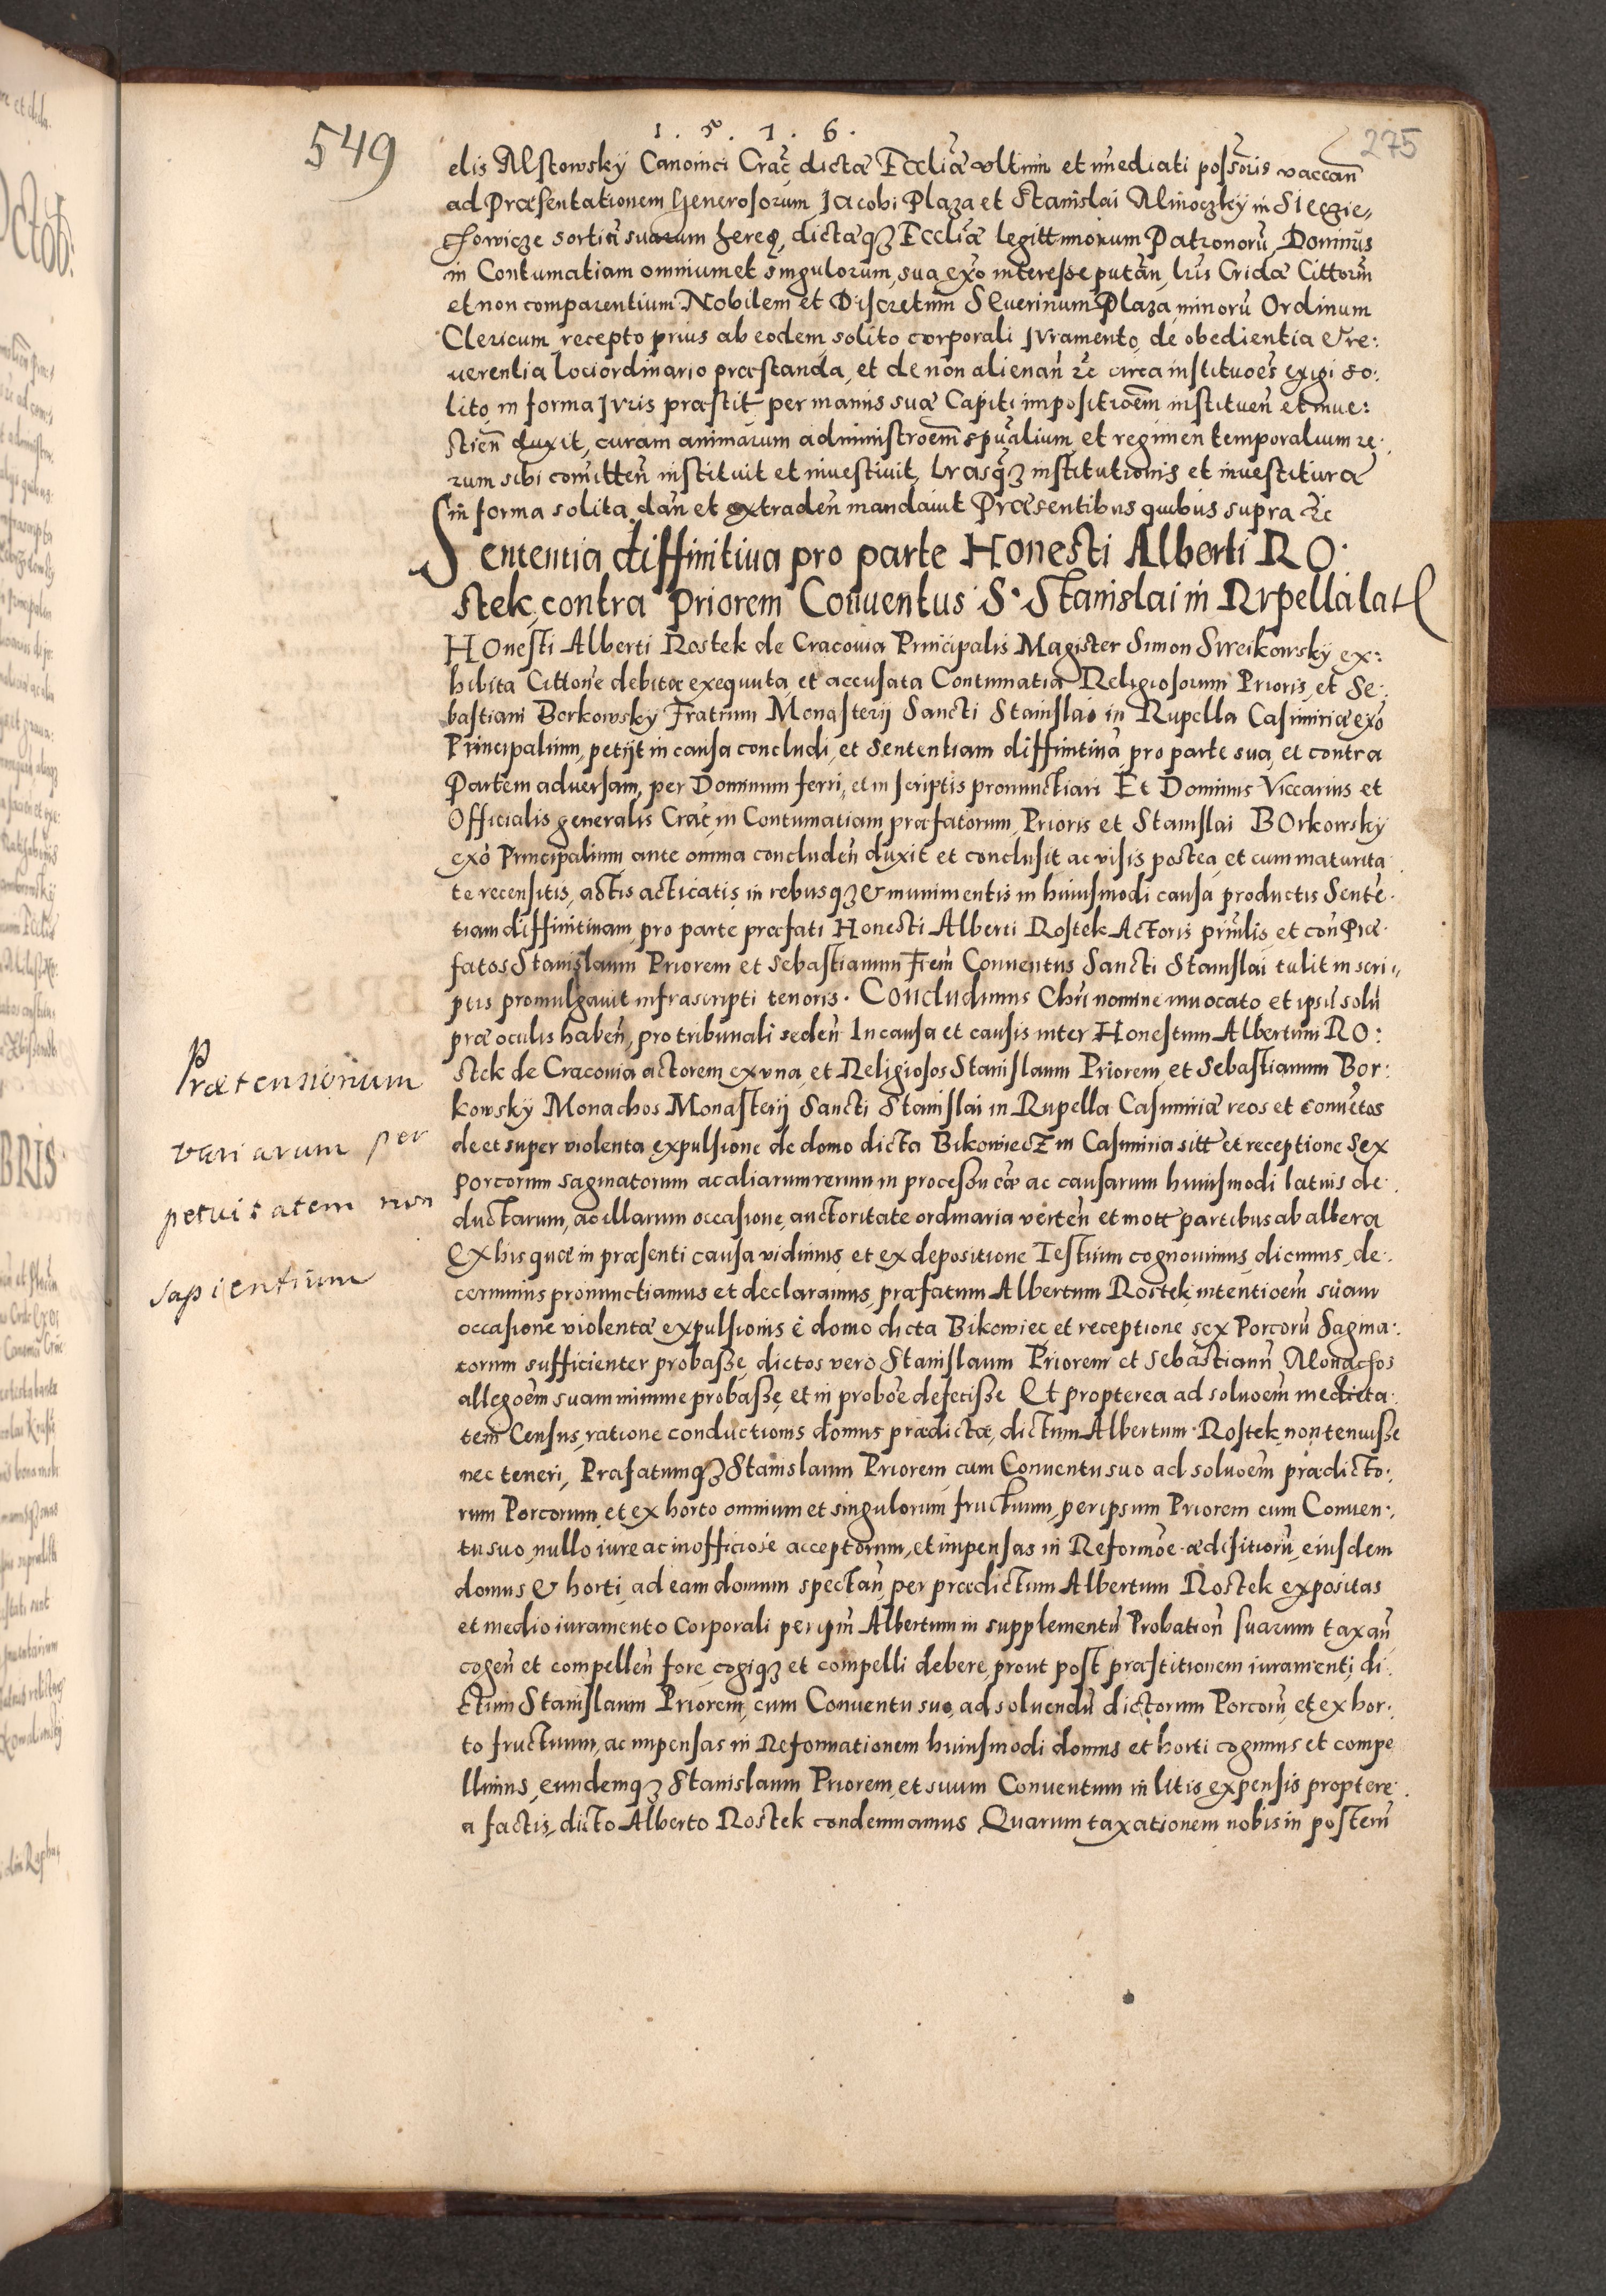 549
1 . 5 . 7 . 6 .
275
elis Mstowsky Canonici Crac̃ dictæ Eccliæ ultimi et im̃ediati possoris vaccan̄
ad Præsentationem Generosorum Jacobi Plaza et Stanislai Mlnoczky in Sieczie,,
chowicze sortiũ suarum hereę, dictæqȝ Eccliæ legittimorum Patronorũ, Dominus
in Contumatiam omnium et singulorum, sua exo interesse putan̄, lris Cridæ Cittorũ
et non comparentium Nobilem et Discretum Seuerinum Plaza, minorũ Ordinum
Clericum, recepto prius ab eodem, solito corporali Juramento, de obedientia & re:
uerentia loci ordinario præstanda, et de non alienan̄ &c circa instituoēs exigi so:
lito, in forma Juris præstit per manus suæ Capiti impositioēm instituen̄ et inue:
stien̄ duxit, curam animarum administroēm spũalium, et regimen temporalium re.
rum sibi com̃itten̄ instituit et inuestiuit, lrasqȝ institutionis et inuestituræ
in forma solita, dan̄ et extraden̄ mandauit Præsentibus quibus supra &c
Sententia diffinitiua pro parte Honesti Alberti RO:
stek, contra Priorem Conuentus S. Stanislai in Rupella lat
HOnesti Alberti Rostek de Cracouia Principalis Magister Simon Sweikowsky ex:
hibita Cittone debitæ exequuta, et accusata Contumatia Religiosorum Prioris, et Se:
bastiani Borkowsky Fratrum Monasterij Sancti Stanislai in Rupella Casimiriæ exo
Principalium, petijt in causa concludi, et Sententiam diffinitiuã, pro parte sua, et contra
Partem aduersam, per Dominum ferri, et in scriptis pronunctiari Et Dominus Viccarius et
Officialis generalis Crac̃, in Contumatiam præfatorum, Prioris et Stanislai BOrkowsky
exo Principalium ante omnia concluden̄ duxit et conclusit ac visis postea, et cum maturita
te recensitis, actis acticatis, in rebusqȝ & munimentis in huiusmodi causa productis Sente.
tiam diffinitiuam, pro parte præfati Honesti Alberti Rostek Actoris prin̄lis, et con̄ Præ.
fatos Stanislaum Priorem et Sebastianum Frem̄ Conuentus Sancti Stanislai tulit in scri,,
ptis promulgauit infrascripti tenoris. Concludimus Chri nomine inuocato et ipsũ solũ
præ oculis haben̄, pro tribunali seden̄ In causa et causis inter Honestum Albertum RO:
stek de Cracouia actorem ex vna, et Religiosos Stanislaum Priorem, et Sebastianum Bor:
kowsky Monachos Monasterij Sancti Stanislai in Rupella Casimiriæ reos et conuẽtos
de et super violenta expulsione de domo dicta Bikowiecz in Casimiria sitt̃ et receptione Sex
porcorum saginatorum ac aliarum rerum in processu cæ ac causarum huiusmodi latius de.
ductarum, ac illarum occasione, auctoritate ordinaria verten̄ et mott̃ partibus ab altera
Ex his quæ in præsenti causa vidimus et ex depositione Testium cognouimus dicimus, de.
cernimus pronunctiamus et declaramus, præfatum Albertum Rostek, intentioēm suam
occasione violentæ expulsionis è domo dicta Bikowiec, et receptione sex Porcorũ Sagina:
torum sufficienter probasse, dictos vero Stanislaum Priorem et Sebastianũ Monachos
allegoēm suam minime probasse, et in proboē defecisse Et propterea ad soluoēm medieta.
tem Census, ratione conductionis domus prædictæ, dictum Albertum Rostek, non tenuisse
nec teneri, Præfatumqȝ Stanislaum Priorem cum Conuentu suo ad soluoēm prædicto:
rum Porcorum, et ex horto omnium et singulorum fructuum, per ipsum Priorem cum Conuen:
tu suo, nullo iure ac inofficiose acceptorum, et impensas in Reformoe ædifitiorũ, eiusdem
domus & horti, ad eam domum spectan̄, per prædictum Albertum Rostek expositas
et medio iuramento Corporali per ipm̃ Albertum in supplementũ Probation̄ suarum taxan̄
cogen̄ et compellen̄ fore, cogiqȝ et compelli debere, prout post præstitionem iuramenti, di
ctum Stanislaum Priorem, cum Conuentu suo, ad soluendũ dictorum Porcorũ et ex hor:
to fructuum, ac impensas in Reformationem huiusmodi domus et horti cogimus et compe
llimus, eundemqȝ Stanislaum Priorem, et suum Conuentum in litis expensis proptere.
a factis, dicto Alberto Rostek condemnamus Quarum taxationem nobis in posterũ
Prætensionum
variarum per
petuitatem non
sapientium